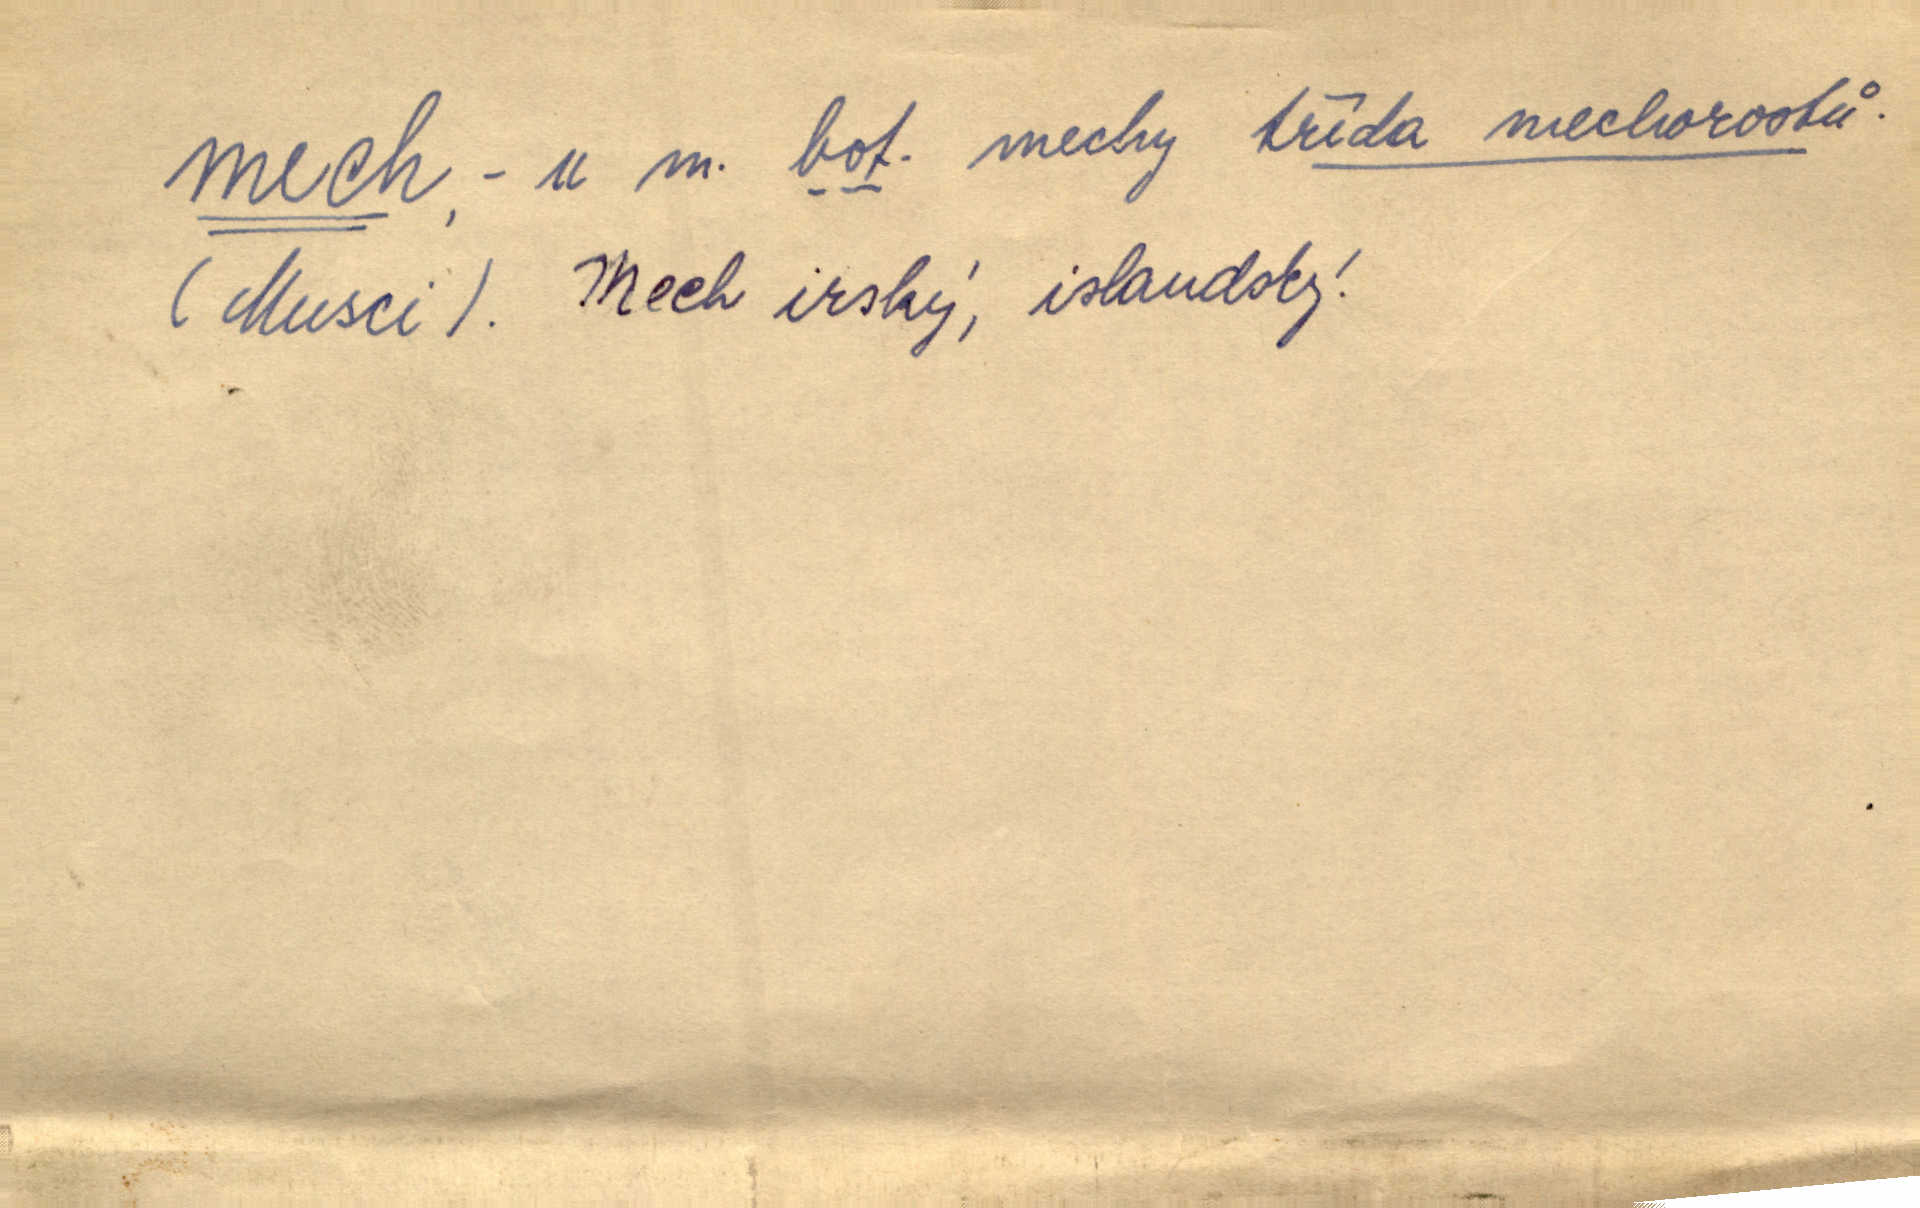 mech, -u m. bot. mechy třída mechorostů.
(Musci). Mech irský, islandský.